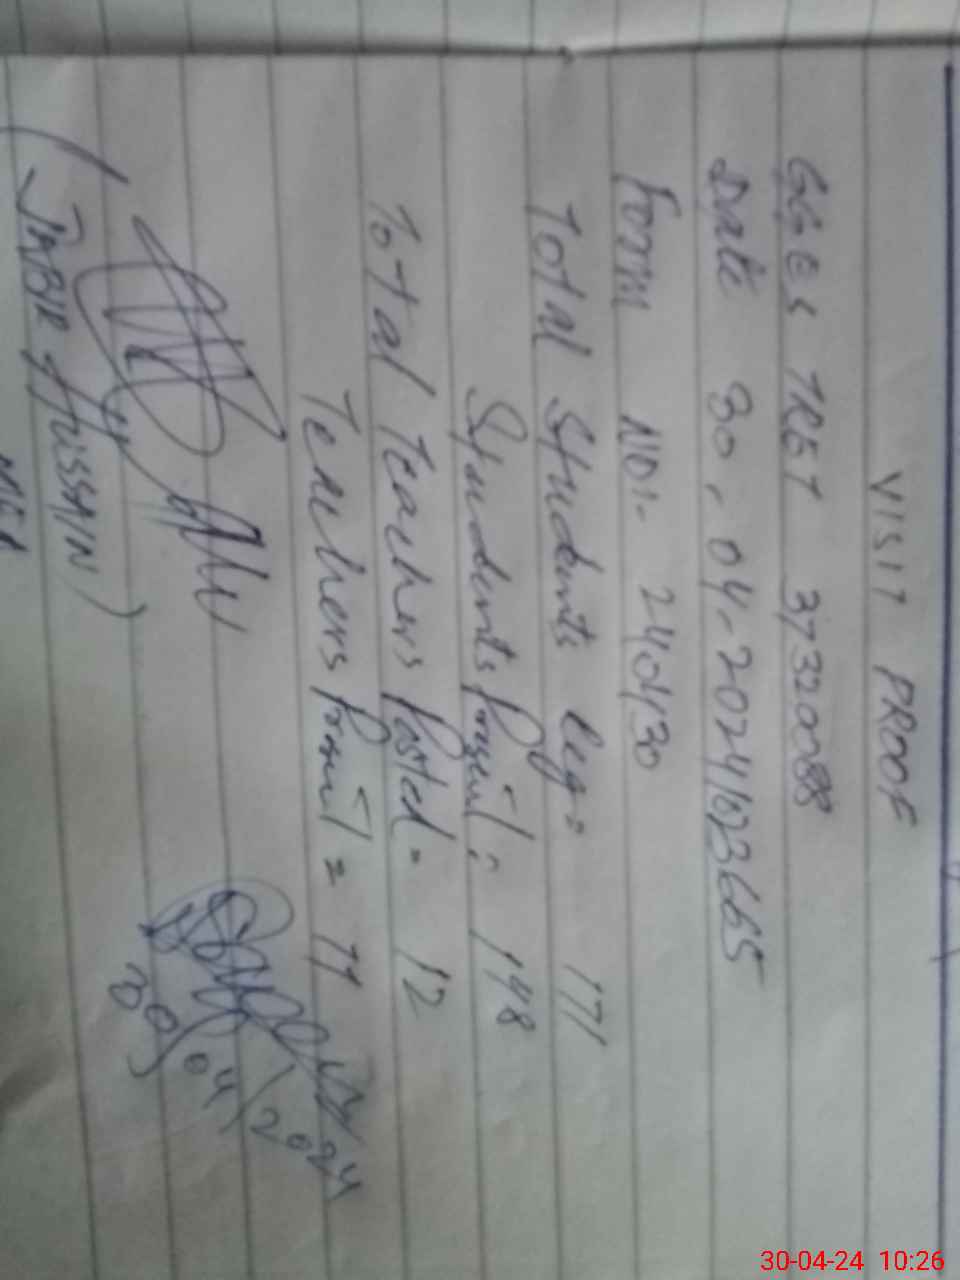 VISIT PROOF
GGES TRET 37320088
Date 30.04.2024
Form NO:- 240430
Total Students Reg= 171
Students Present: 148
Total Teachers Posted= 12
Teachers Present = 11
30/04/2024
(JABIR HUSSAIN)
MEA
30-04-24 10:26